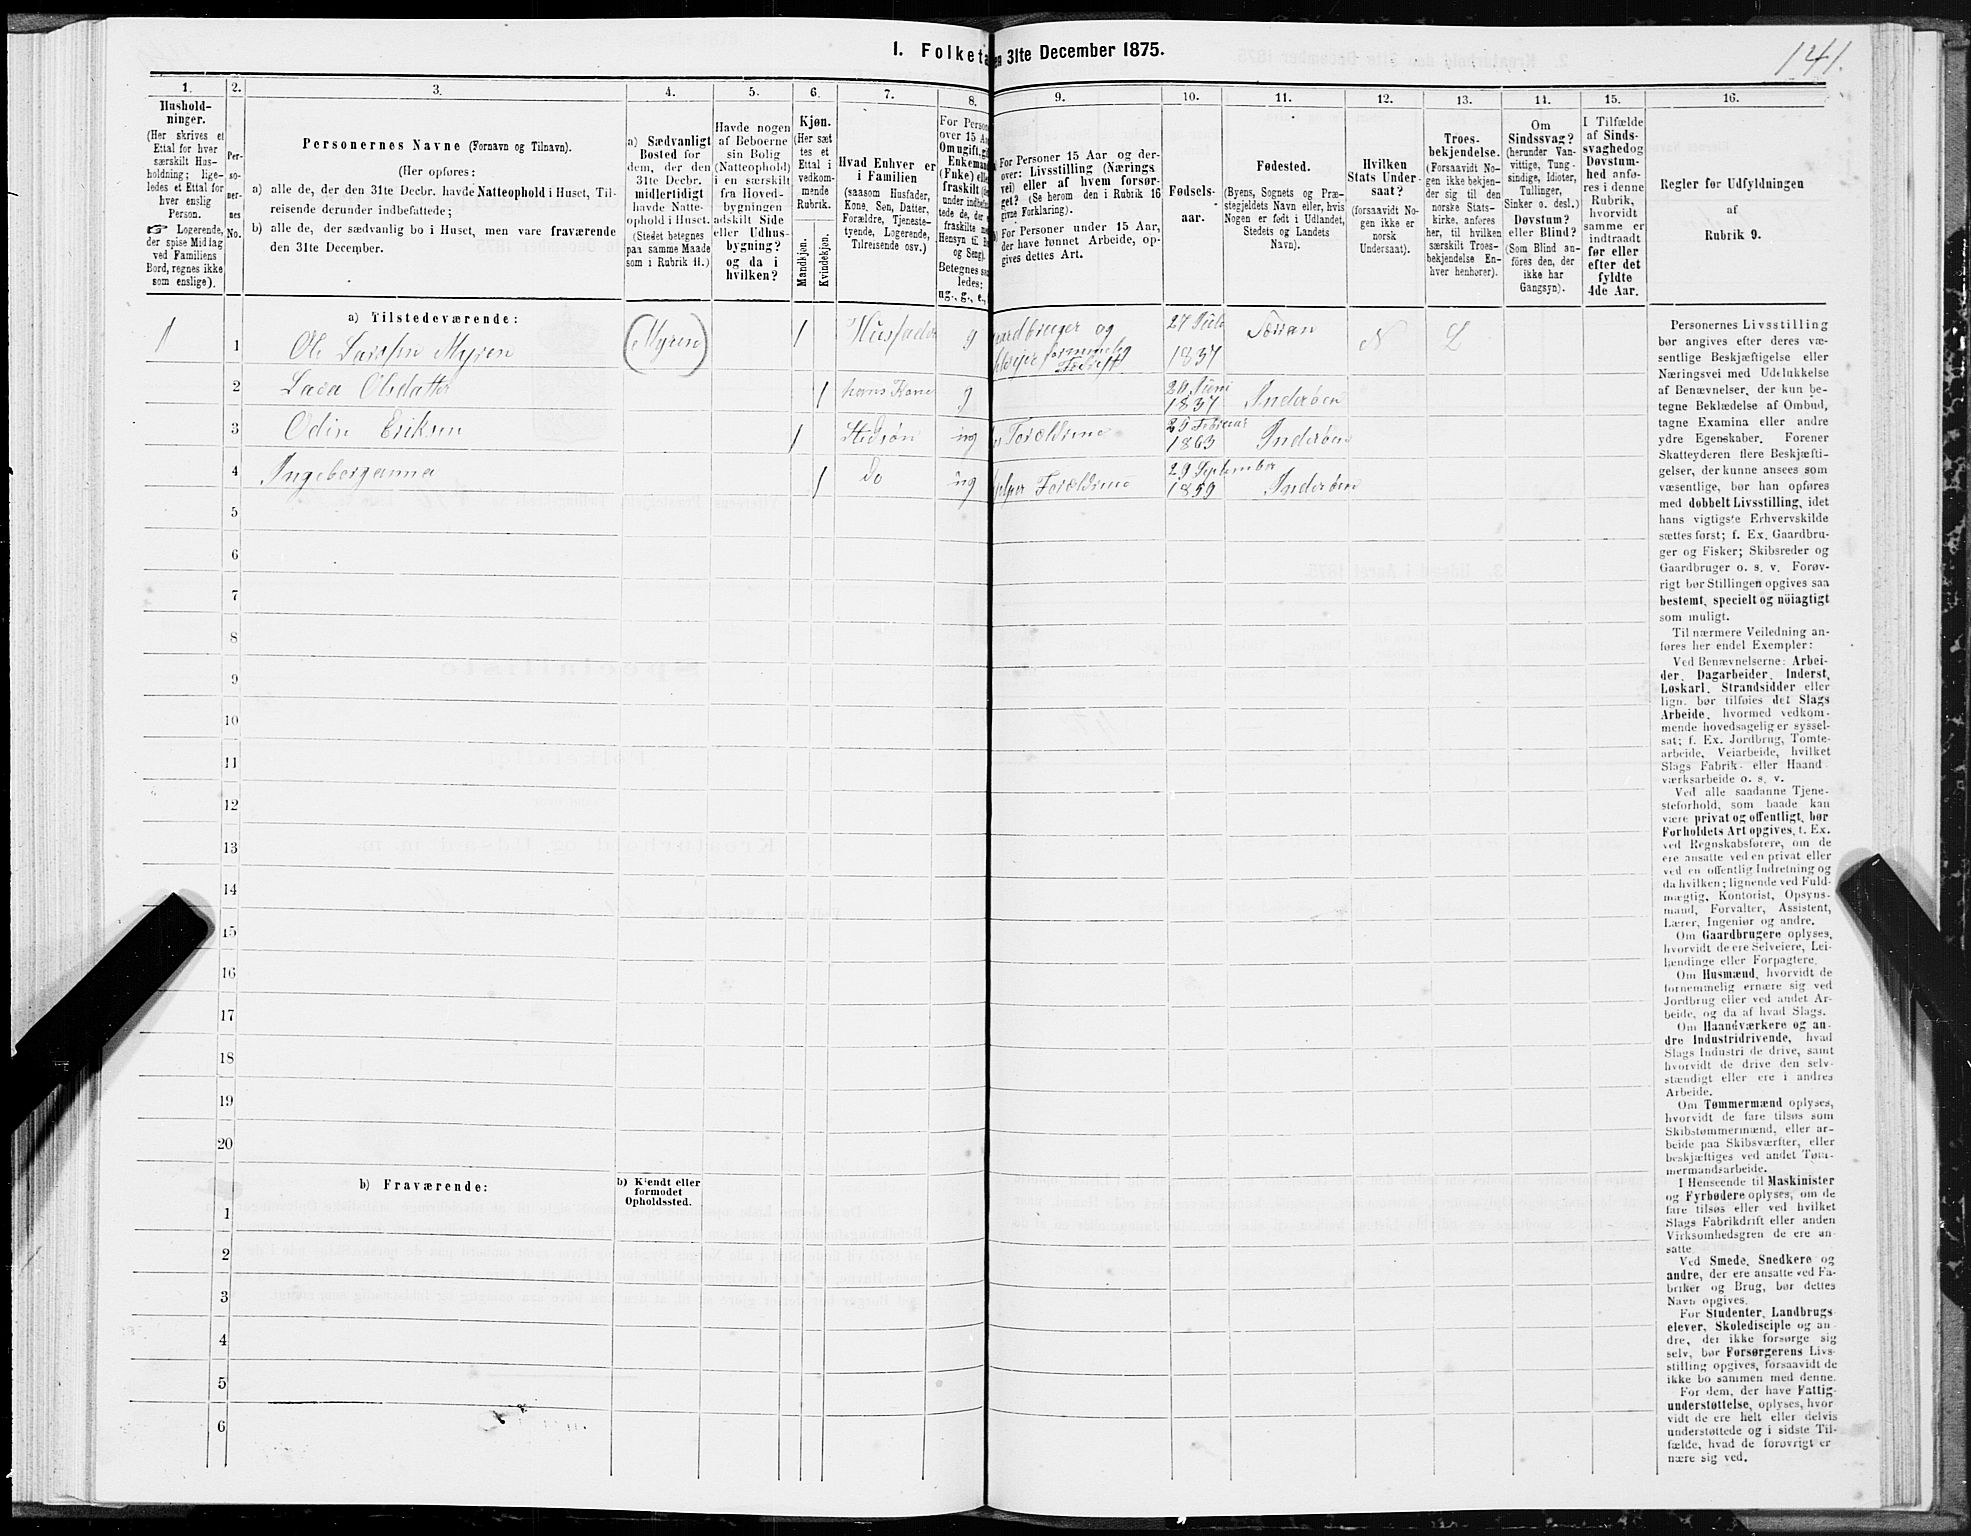 141.
1. Folketa
en 31te December 1875.
1.
Hushold-
ninger.
(Her skrives et
Ettal for hver
særskilt Hus-
holdning; lige-
ledes et Ettal for
hver enslig
Person.
☞ Logerende,
der spise Middag
ved Familiens
Bord, regnes ikke
som enslige).
2.
Per-
so-
ner-
nes
No.
3.
Personernes Navne (Fornavn og Tilnavn).
(Her opføres:
a) alle de, der den 31te Decbr. havde Natteophold i Huset, Til-
reisende derunder indbefattede;
b) alle de, der sædvanlig bo i Huset, men vare fraværende
den 31te December.
4.
a) Sædvanligt
Bosted for
dem, der den
31te Decbr.
midlertidigt
havde Natte-
ophold i Huset.
(Stedet betegnes
paa samme Maade
som i Rubrik 11.)
5.
Havde nogen
af Beboerne
sin Bolig
(Natteophold)
i en særskilt
fra Hoved-
bygningen
adskilt Side
eller Udhus-
bygning?
og da i
hvilken?
6.
Kjøn.
(Her sæt
tes et
Ettal i
vedkom-
mende
Rubrik.
Mandkjøn.
Kvindekjøn.
7.
Hvad Enhver er
i Familien
(saasom Husfader,
Kone, Søn, Datter,
Forældre, Tjeneste-
tyende, Logerende,
Tilreisende osv.)
8.
For Person
over 15 Aa
Om ugift, gif
Enkemand
(Enke) elle
fraskilt (de
under indbefat
tede de, der e
fraskilte me
Hensyn til B
og Seng).
Betegnes saa
ledes:
ug., g., e.,
9.
For Personer 15 Aar og der-
over: Livsstilling (Nærings
vei) eller af hvem forsør-
get? (Se herom den i Rubrik 16
givne Forklaring).
For Personer under 15 Aar,
der have lønnet Arbeide, op-
gives dettes Art.
10.
Fødsels-
aar.
11.
Fødested.
(Byens, Sognets og Præ-
stegjeldets Navn eller, hvis
Nogen er født i Udlandet,
Stedets og Landets
Navn).
12.
Hvilken
Stats Under-
saat?
(forsaavidt No-
gen ikke er
norsk
Undersaat).
13.
Troes-
bekjendelse.
(Forsaavidt No-
gen ikke bekjen-
der sig til den
norske Stats-
kirke, anføres
her, til hvilken
særskilt Troes-
bekjendelse En-
hver henhører).
14.
Om
Sindssvag?
(herunder Van-
vittige, Tung-
sindige, Idioter,
Tullinger,
Sinker o. desl.)
Døvstum?
eller Blind?
(Som Blind an-
føres den, der
ikke har
Gangsyn).
15.
I Tilfælde
af Sinds-
svaghed og
Døvstum-
hed anfø-
res i denne
Rubrik,
hvorvidt
samme er
indtraadt
før eller
efter det
fyldte
4de Aar.
16.
Regler for Udfyldningen
af
Rubrik 9.
a) Tilstedeværende:
1 1 Ole Larssen Myren (Myren) 1 Husfader g aardbruger og 27 Juli 1837 N L
2 Olsdatter 1 hans Kone g 1837 Inderøen
3 Odin Eriksen 1 Stedsøn ug Forældrene 25 Februar 1863 Inderøen
4 Ingeborganna 1 Do ug Forældrene 29 September 1859 Inderøen
5
6
7
8
9
10
11
12
13
14
15
16
17
18
19
20
b) Fraværende:
b) Kjendt eller
formodet
Opholdssted.
1
2
3
4
5
6
Personernes Livsstilling
bør angives efter deres væ-
sentlige Beskjæftigelse eller
Næringsvei med Udelukkelse
af Benævnelser, der kun be-
tegne Beklædelse af Ombud,
tagne Examina eller andre
ydre Egenskaber. Forener
Skatteyderen flere Beskjæfti-
gelser, der kunne ansees som
væsentlige, bør han opføres
med dobbelt Livsstilling, idet
hans vigtigste Erhvervskilde
sættes først; f. Ex. Gaardbru-
ger og Fisker; Skibsreder og
Gaardbruger o. s. v. Forøv-
rigt bør Stillingen opgives saa
bestemt, specielt og nöiagtigt
som muligt.
Til nærmere Veiledning an-
føres her endel Exempler:
Ved Benævnelserne: Arbei-
der, Dagarbeider, Inderst,
Løskarl, Strandsidder eller
lign. bør tilføies det Slags
Arbeide, hvormed vedkom-
mende hovedsagelig er syssel-
sat; f. Ex. Jordbrug, Tomte-
arbeide, Veiarbeide, hvilket
Slags Fabrik- eller Haand-
værksarbeide o. s. v.
Ved alle saadanne Tjene-
steforhold, som baade kan
være privat og offentligt, bør
Forholdets Art opgives, f. Ex.
ved Regnskabsførere, om de
ere ansatte ved en privat eller
ved en offentlig Indretning og
da hvilken; lignende ved Fuld-
mægtig, Kontorist, Opsyns-
mand, Forvalter, Assistent,
Lærer, Ingeniør og andre.
Om Gaardbrugere oplyses,
hvorvidt de ere Selveiere, Lei-
lændinge eller Forpagtere.
Om Husmænd, hvorvidt de
fornemmelig ernære sig ved
Jordbrug eller ved andet Ar-
beide, og da af hvad Slags.
Om Haandværkere og an-
dre Industridrivende, hvad
Slags Industri de drive, samt
hvorvidt de drive den selv-
stændigt eller ere i andres
Arbeide.
Om Tømmermænd oplyses,
hvorvidt de fare tilsøs som
Skibstømmermænd, eller ar-
beide paa Skibsværfter, eller
beskjæftiges ved andet Tøm-
mermandsarbeide.
I Henseende til Maskinister
og Fyrbødere oplyses, om de
fare tilsøs eller ved hvilket
Slags Fabrikdrift eller anden
Virksomhedsgren de ere an-
satte.
Ved Smede, Snedkere og
andre, der ere ansatte ved Fa-
briker og Brug, bør dettes
Navn opgives.
For Studenter, Landbrugs-
elever, Skoledisciple og an-
dre, der ikke forsørge sig
selv, bør Forsørgerens Livs-
stilling opgives, forsaavidt de
ikke bo sammen med denne.
For dem, der have Fattig-
understøttelse, oplyses, hvor-
vidt de ere helt eller delvis
understøttede og i sidste Til-
fælde, hvad de forøvrigt er-
nære sig ved.